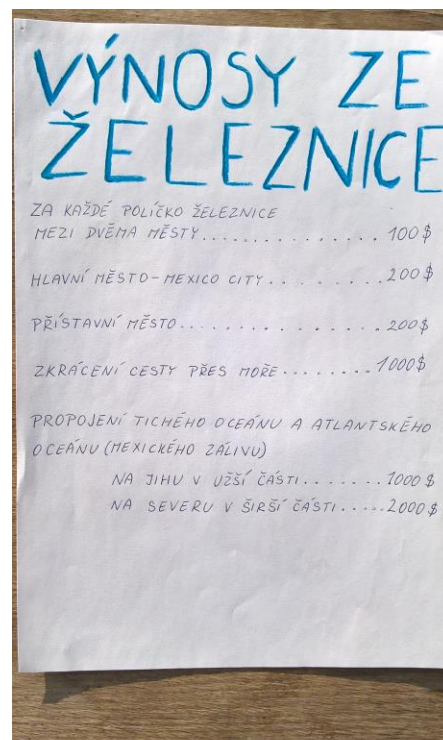 VÝNOSY ZE
ŽELEZNICE
ZA KAŽDÉ POLÍČKO ŽELEZNICE
MEZI DVĚMA MĚSTY.............. 100$
HLAVNÍ MĚSTO-MEXICO CITY......... 200$
PŘÍSTAVNÍ MĚSTO................ 200$
ZKRÁCENÍ CESTY PŘES MOŘE........ 1000$
PROPOJENÍ TICHÉHO OCEÁNU A ATLANTSKÉHO
OCEÁNU (MEXICKÉHO ZÁLIVU)
NA JIHU V UŽŠÍ ČÁSTI....... 1000$
NA SEVERU V ŠIRŠÍ ČÁSTI..... 2000$